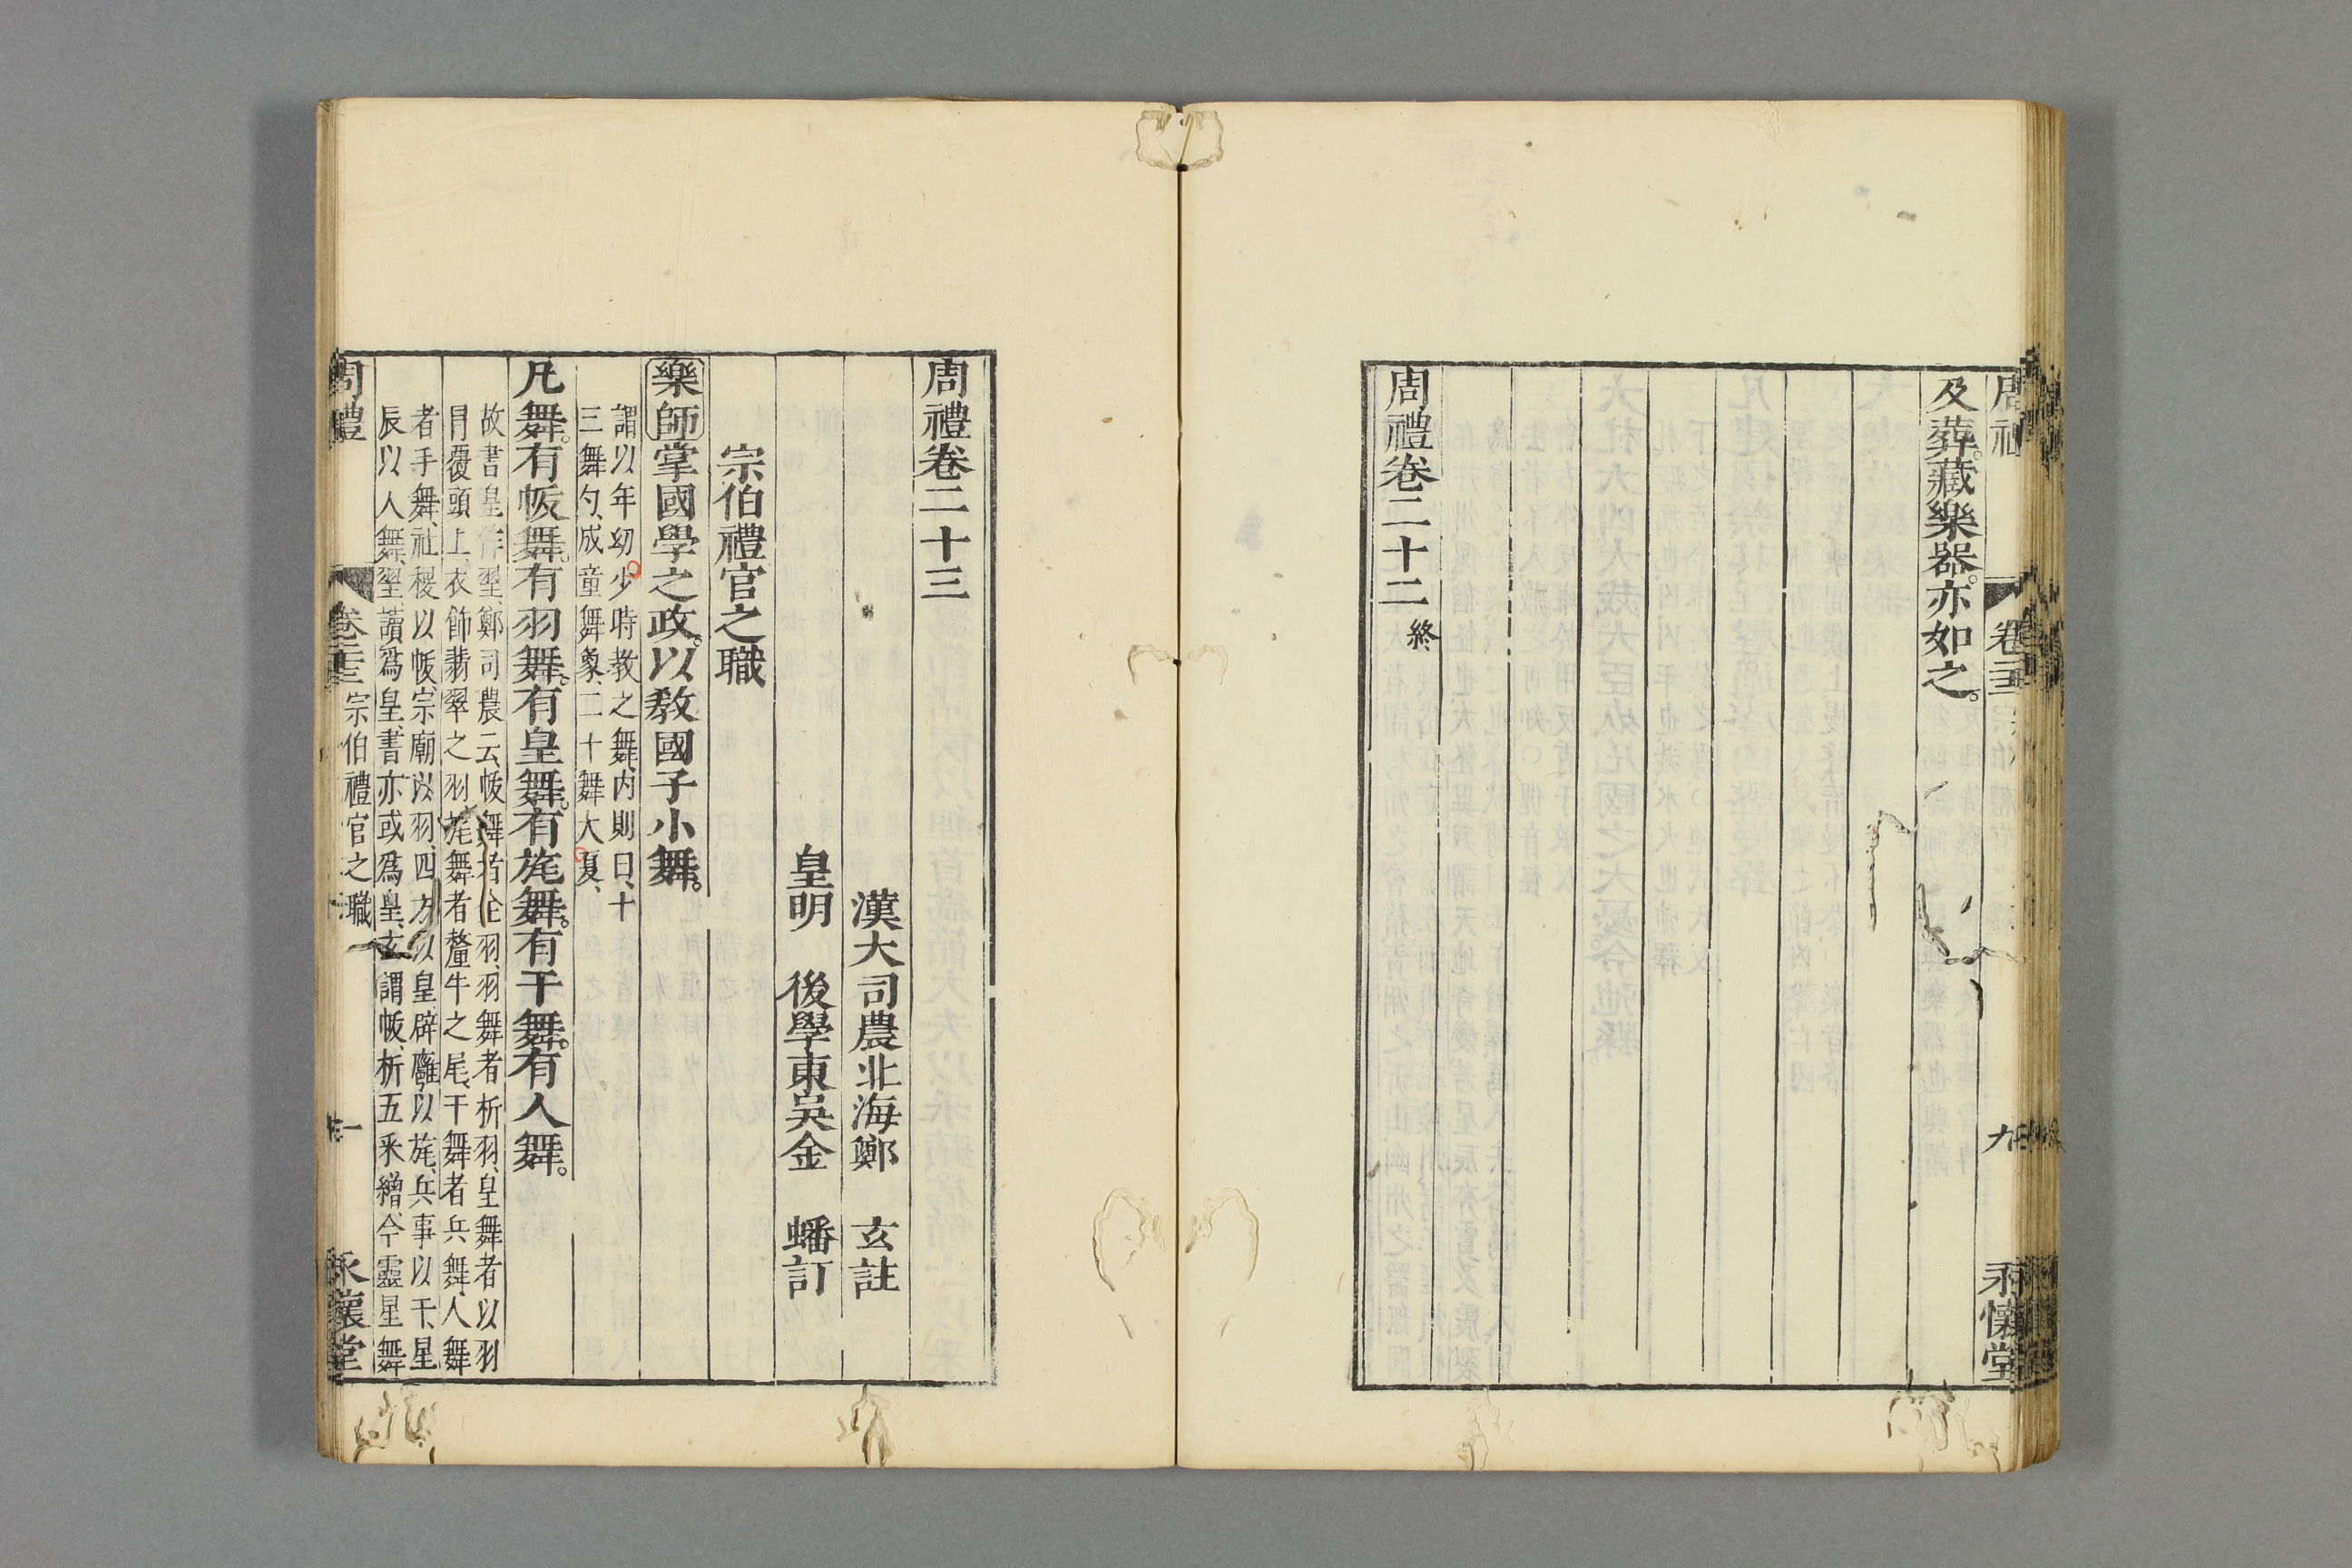 及葬。藏樂器。亦如之。
周禮卷二十二 終
九
永懷堂
周禮卷二十三
漢大司農北海鄭 玄註
皇明 後學東吳金 蟠訂
宗伯禮官之職
樂師掌國學之政。以教國子小舞。
謂以年幼少時教之舞、内則曰、十
三舞勺、成童舞象、二十舞大夏、
凡舞。有帗舞。有羽舞。有皇舞。有旄舞。有干舞。有人舞。
故書皇作䍿、鄭司農云、帗舞者全羽、羽舞者析羽、皇舞者以羽
冐覆頭上、衣飾翡翠之羽、旄舞者氂牛之尾、干舞者兵舞、人舞
者手舞、社稷以帗、宗廟以羽、四方以皇、辟廱以旄、兵事以干、星
辰以人舞、䍿讀爲皇、書亦或爲皇、玄謂帗、析五采繒、今靈星舞
周禮 卷二十三 宗伯禮官之職 一 永懷堂